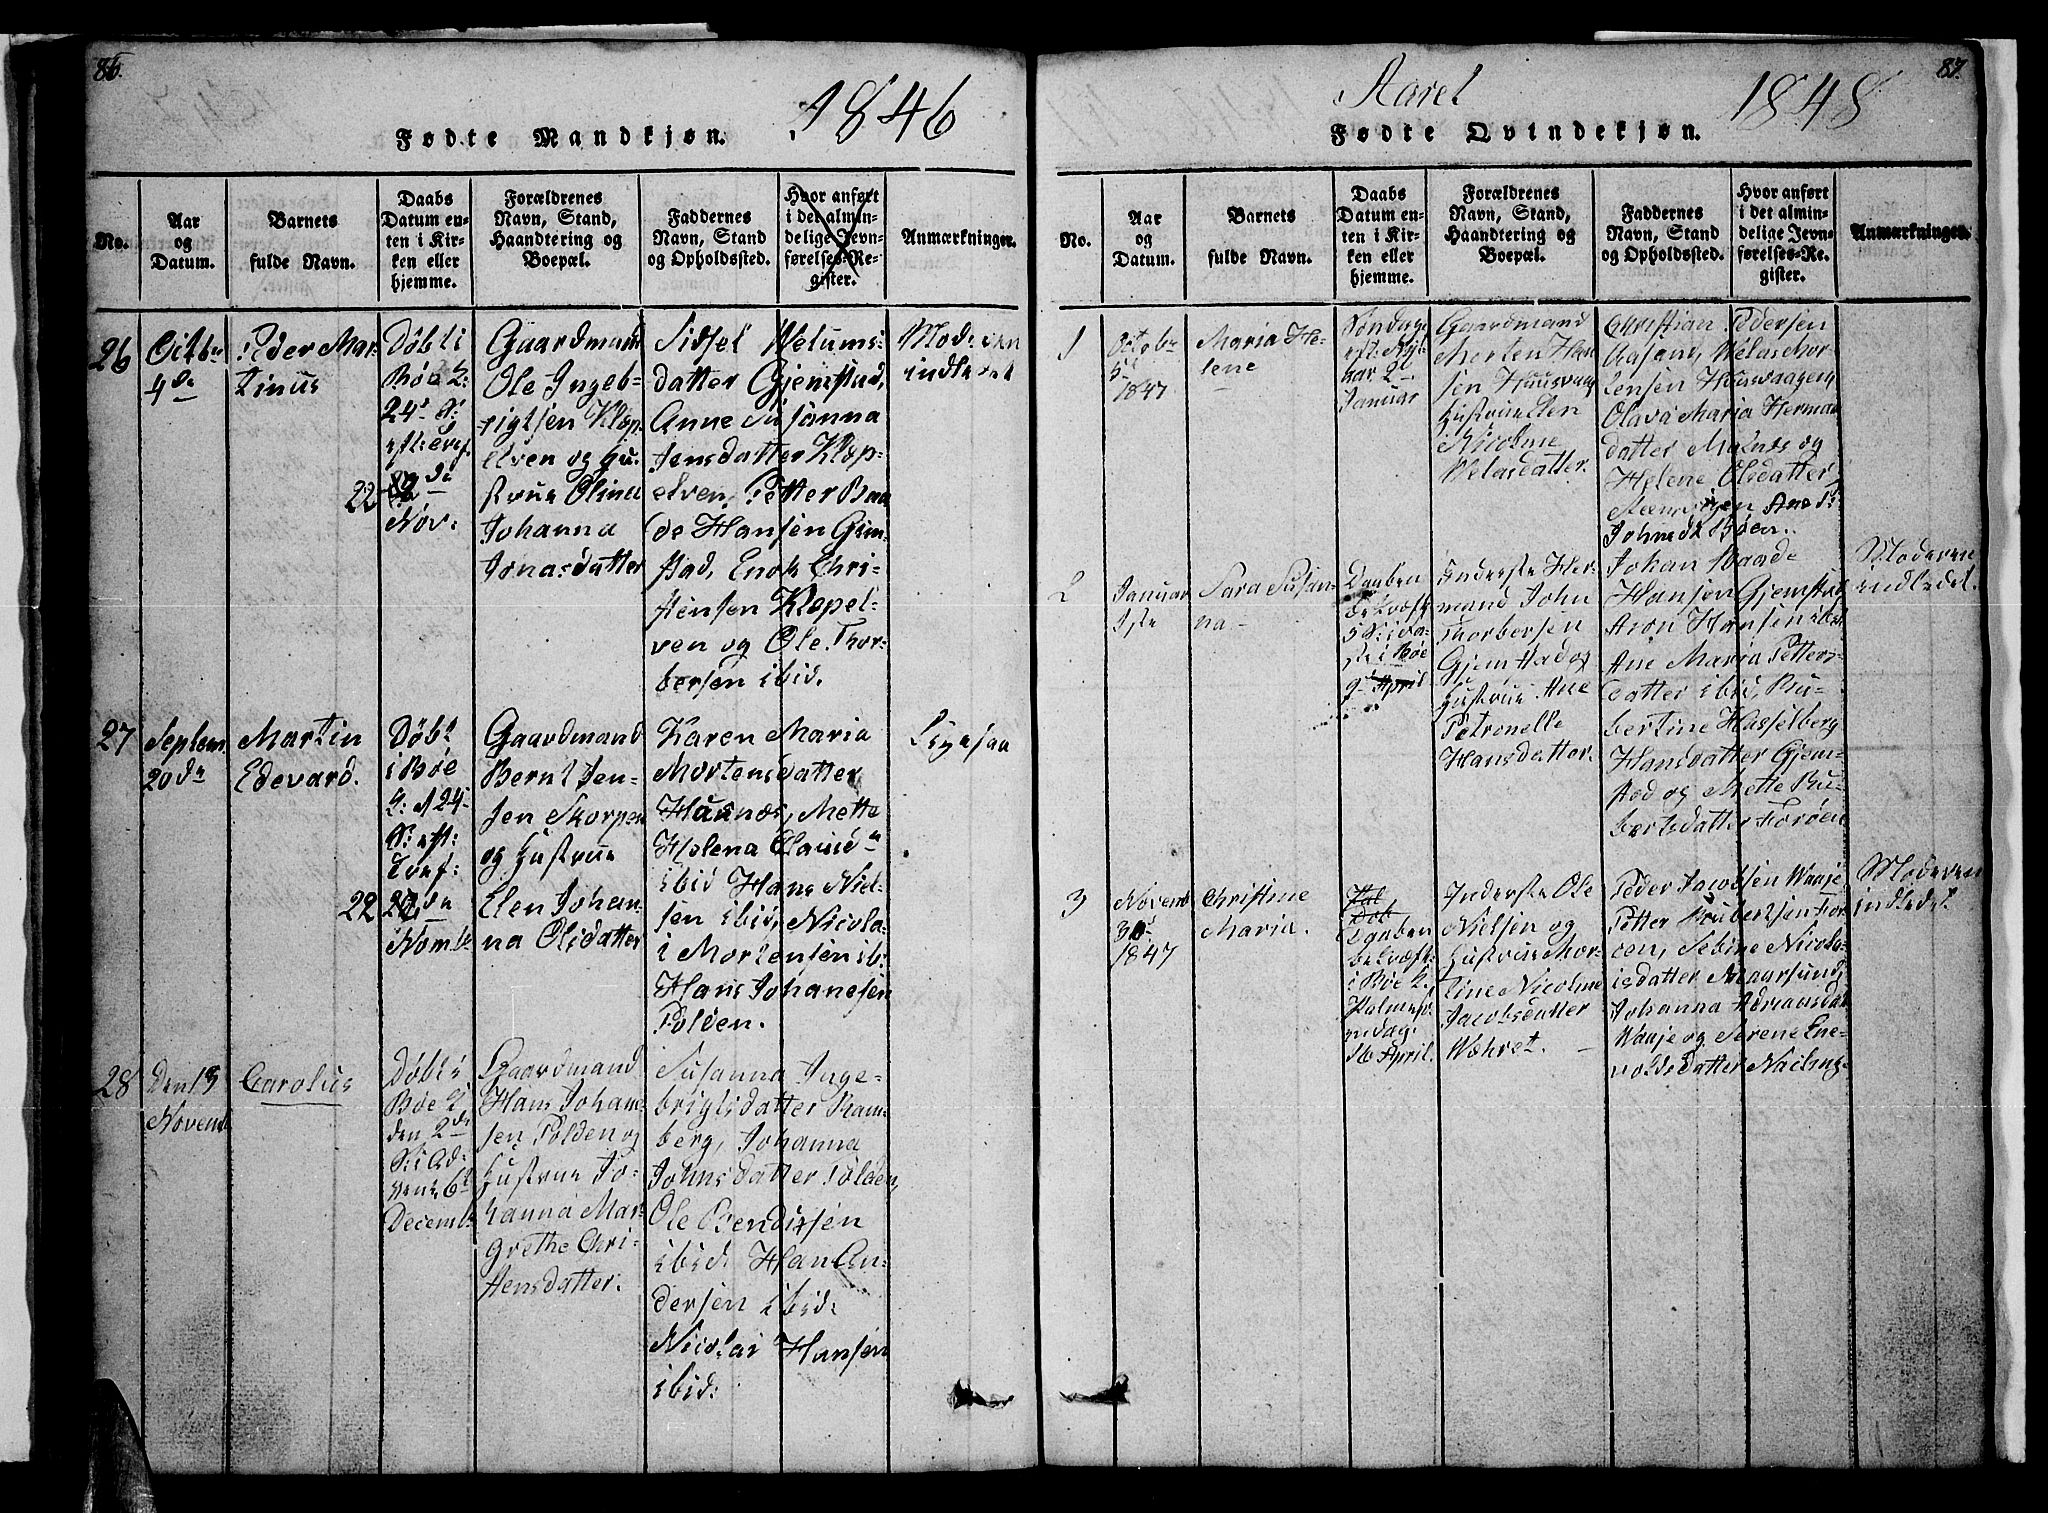 86.
1846
Fødte Mandkjøn.
No.
Aar
og
Datum.
Barnets
fulde Navn.
Daabs
Datum en-
ten i Kir-
ken eller
hjemme.
Forældrenes
Navn, Stand,
Haandtering og
Boepæl.
Faddernes
Navn, Stand
og Opholdssted.
Hvor anført
i det almin-
delige Jevn-
førelses-Re-
gister.
Anmærkninger.
26
Octbr
4de
Peder Mar-
tinus
Døbt i
Bøe K:
24d S:
22
Nov:
Gaardmand
Ole Ingeb-
rigtsen Klep-
elven og Hu-
strue Olina
Johanna
Jonasdatter
Sidsel Welums-
datter Gjemstad,
Anne Susanna
Jensdatter Klep-
elven Petter Baa
de Hansen Gjem-
stad, Enok Chri-
stensen Klepel-
ven og Ole Thor-
bersen ibid.
Moderen
indledet
27
Septem
20de
Martin
Edevard.
Døbt
i Bøe
K: d 24
S: eft:
Tref:
22
Nombr
Gaardmand
Bernt Jen-
sen Skorpen
og Hustrue
Elen Johan-
na Olsdatter
Karen Maria
Mortensdatter
Haunæs, Mette
Helena
ibid Hans Niel-
sen ibid, Nicola-
i Mortensen ib:
Hans Johansen
Polden.
Ligesaa
28
Den 13
Novemb
Carolus
Døbt i
Bøe K
den 2de
S: i Ad-
vent 6t
Decembr
Gaardmand
Hans Johan-
sen Polden og
Hustrue Jo-
hanna Mar-
grethe Chri-
stensdatter.
Susanna Inge-
brigtsdatter Ram-
berg, Johanna
Johnsdatter Polden,
Ole Bendixsen
ibid: Han An-
dersen ibid:
Nicolai Hansen
ibid:
87.
Aaret
1848
Fødte Qvindekjøn.
No.
Aar
og
Datum.
Barnets
fulde Navn.
Daabs
Datum en-
ten i Kir-
ken eller
hjemme.
Forældrenes
Navn, Stand,
Haandtering og
Boepæl.
Faddernes
Navn, Stand
og Opholdssted.
Hvor anført
i det almin-
delige Jevn-
førelses-Re-
gister.
Anmærkninger.
1
Octobr
5
1847
Maria He-
lene
Søndag
eft: Nyt-
aar 2
Januar
Gaardmand
Morten Han
sen Huusvaag
Hustrue Elen
Nicoline
Welasdatter.
Christian Pedersen
Aasand, Welas Mor-
tensen Huusvaagen,
Olava Maria Herman
datter Malnes og
Helene Olsdatter
2
Januar
1ste
Sara Susan-
na
Daaben
bekræft
5 S: i Fa-
ste i Bøe
9 April
Inderste Her-
mand John
Thorbersen
Gjemstad og
Hustrue Ane
Petronelle
Hansdatter.
Johan Baade
Hansen Gjemstad
Aron Hansen ibid
Ane Maria Petters-
datter ibid, Ru-
bertine Hasselberg
Hansdatter Gjem-
stad og Mette Ru-
bertsdatter Forøen
Moderen
indledet.
3
Novemb
30
1847
Christine
Maria.
Daaben
bekræft
i Bøe K.
Palmesø
ndag
16 April.
Inderste Ole
Nielsen og
Hustrue Mar-
tine Nicoline
Jacobsdatter
Peder Jacobsen Waaje
Petter Rubertsen For
øen, Sebine Nicola-
isdatter Maarsund,
Johanna Adriansdat
Waaje og Serene Ene-
voldsdatter
Moderen
indledet